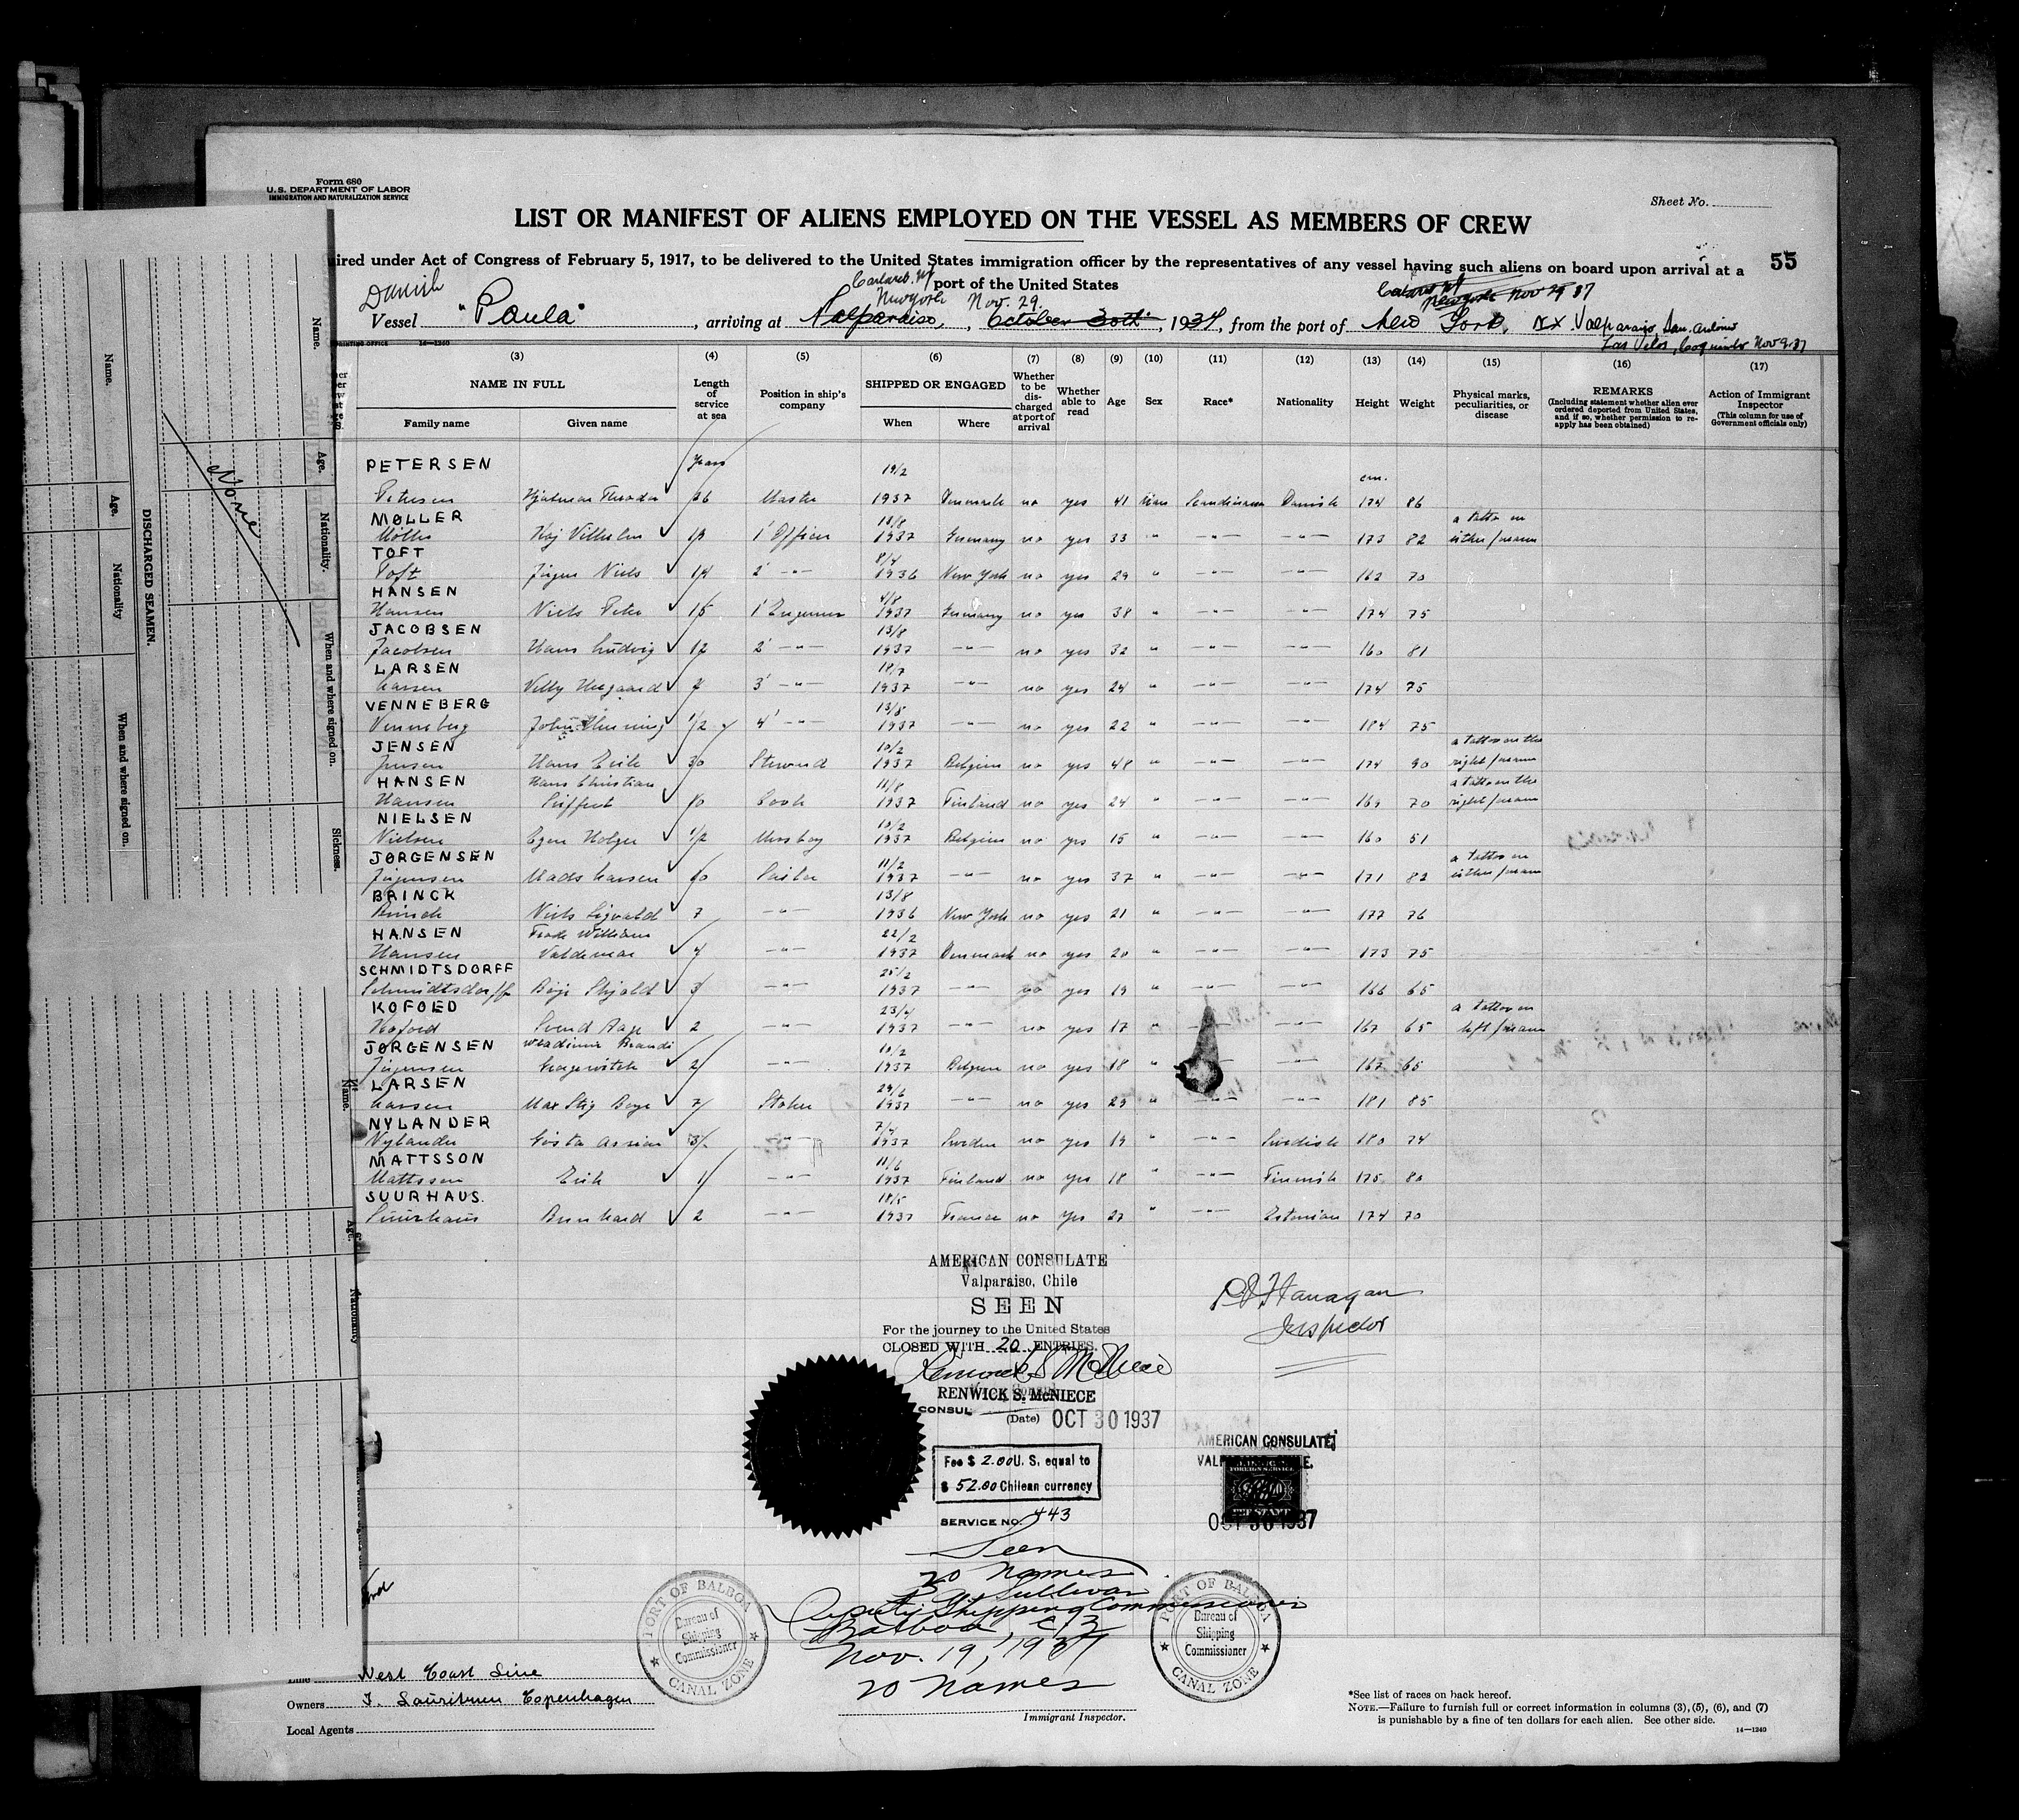 Form 680
U. S. DEPARTMENT OF LABOR
IMMIGRATION AND NATURALIZATION SERVICE
Sheet No.
LIST OR MANIFEST OF ALIENS EMPLOYED ON THE VESSEL AS MEMBERS OF CREW
ired under Act of Congress of February 5, 1917, to be delivered to the United States immigration officer by the representatives of any vessel having such aliens on board upon arrival at a
55
port of the United States
Danish
New York Nov. 29.
New York Nov 29 37
Vessel "Paula", arriving at Valparaiso, October 30th, 1937, from the port of New York, Ex Valparaiso San Antonio
Los Vilos, Coquimbo Nov 9. 37
(3) (4) (5) (6) (7) (8) (9) (10) (11) (12) (13) (14) (15) (16) (17)
NAME IN FULL
Family name Given name
Length of service at sea
Position in ship's company
SHIPPED OR ENGAGED
When Where
Whether to be discharged at port of arrival
Whether able to read
Age Sex Race* Nationality Height Weight
Physical marks, peculiarities, or disease
REMARKS
(Including statement whether alien ever ordered deported from United States, and if so, whether permission to re-apply has been obtained)
Action of Immigrant Inspector
(This column for use of Government officials only)
PETERSEN Years 19/2 cm.
Petersen Hjalmar Theodor 26 Master 1937 Denmark no yes 41 Scandinavian Danish 174 86
MØLLER 18/8 a tattoo on
Møller Kaj Vilhelm 1' Officer 1937 Germany no yes 33 " -"- -"- 173 82 either forearm
TOFT 8/4
Toft Jörgen Niels 14 2' -"- 1936 New York no yes 29 " -"- -"- 162 70
HANSEN 4/8
Hansen Niels Peter 15 1' Engineer 1937 Germany no yes 38 " -"- -"- 174 75
JACOBSEN 13/8
Jacobsen Hans Ludvig 12 2' -"- 1937 -"- no yes 32 " -"- -"- 160 81
LARSEN 18/7
Larsen Villy 3' -"- 1937 -"- no yes 24 " -"- -"- 174 75
VENNEBERG 13/8
Venneberg John Henning 1/2 4' -"- 1937 -"- no yes 22 " -"- -"- 184 75
JENSEN 10/2 a tattoo on the
Jensen Hans Erik 30 Steward 1937 Belgium no yes 48 " -"- -"- 174 90 right forearm
HANSEN Hans Christian 11/8 a tattoo on the
Hansen 10 Cook 1937 Finland no yes 24 " -"- -"- 169 70 right forearm
NIELSEN 10/2
Nielsen Egon Holger 1/2 Messboy 1937 Belgium no yes 15 " -"- -"- 160 51
JØRGENSEN 11/2 a tattoo on
Jörgensen Mads Larsen Sailor 1937 -"- no yes 37 " -"- -"- 171 82 either forearm
BRINCK 13/8
Brinck Niels Sigvald 7 -"- 1936 New York no yes 21 " -"- -"- 177 76
HANSEN Frode William 22/2
Hansen Valdemar 4 -"- 1937 Denmark no yes 20 " -"- -"- 173 75
SCHMIDTSDORFF 25/2
Schmidtsdorff Børge Skjold 3 -"- 1937 -"- no yes 19 " -"- -"- 166 65
KOFOED 23/4 a tattoo on
Kofoed Svend Aage 2 -"- 1937 -"- no yes 17 " -"- -"- 167 65 left forearm
JØRGENSEN Wladimir Brandi 10/2
Jörgensen 2 -"- 1937 Belgium no yes 18 " -"- -"- 167 65
LARSEN 29/6
Larsen Max Stig Børge 7 Stoker 1937 -"- no yes 23 " -"- -"- 181 85
NYLANDER 7/4
Nylander Gösta 3 -"- 1937 Sweden no yes 19 " -"- Swedish 180 74
MATTSSON 11/6
Mattsson Erik 1 -"- 1937 Finland no yes 18 " -"- Finnish 175 80
SUURHAUS. 18/5
Suurhaus Bernhard 2 -"- 1937 France no yes 27 " -"- Estonian 174 70
AMERICAN CONSULATE
Valparaiso, Chile
SEEN
For the journey to the United States
CLOSED WITH 20 ENTRIES.
Renwick S. McNiece
RENWICK S. McNIECE
CONSUL
(Date) OCT 30 1937
Flanagan
Inspector
Fee $ 2.00 U. S. equal to
$ 52.00 Chilean currency
SERVICE NO. 443
AMERICAN CONSULATE
OCT 30 1937
Seen
20 names
Sullivan
Deputy Shipping Commissioner
Balboa, CZ
Nov. 19, 1937
20 names
Immigrant Inspector.
PORT OF BALBOA
Bureau of
Shipping
Commissioner
CANAL ZONE
PORT OF BALBOA
Bureau of
Shipping
Commissioner
CANAL ZONE
West Coast Line
Owners J. Lauritzen Copenhagen
Local Agents
*See list of races on back hereof.
NOTE.—Failure to furnish full or correct information in columns (3), (5), (6), and (7)
is punishable by a fine of ten dollars for each alien. See other side.
14—1240
DISCHARGED SEAMEN.
Name. Age. Nationality When and where signed on.
Name. Age. Nationality. When and where signed on. Sickness.
None
Name. Age. Nationality